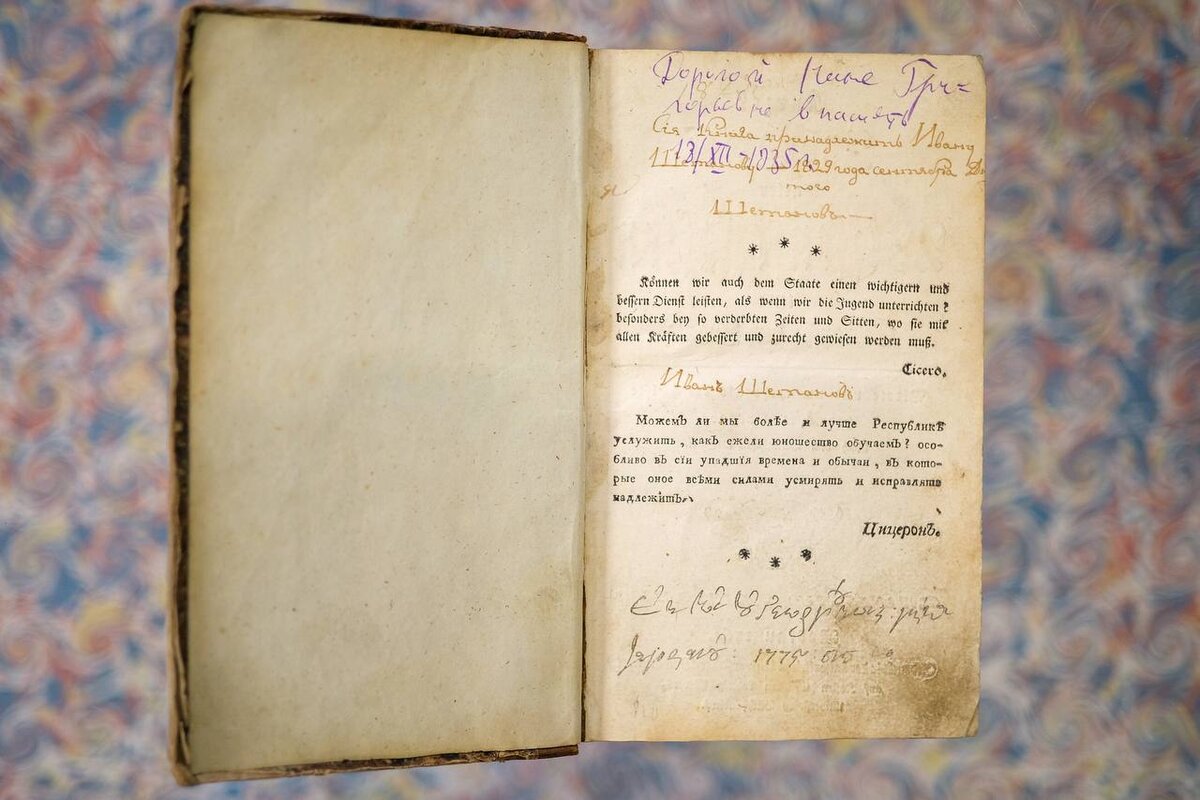 Дорогой Нине Гри=
горьевне в память
Сія Книга принадлежитъ Ивану
13/XII - 1935 г.
Шетанову 1829 года сентября
того
Шетановъ
* * *
Können wir auch dem Staate einen wichtigern und
bessern Dienst leisten, als wenn wir die Jugend unterrichten?
besonders bey so verderbten Zeiten und Sitten, wo sie mit
allen Kräften gebessert und zurecht gewiesen werden muß.
Cicero.
Иванъ Шетановъ
Можемъ ли мы болѣе и лучше Республикѣ
услужить, какъ ежели юношество обучаемъ? осо-
бливо въ сїи упадшїя времена и обычаи, въ кото-
рые оное всѣми силами усмирять и исправлять
надлежитъ.
Цицеронъ.
* * *
1775